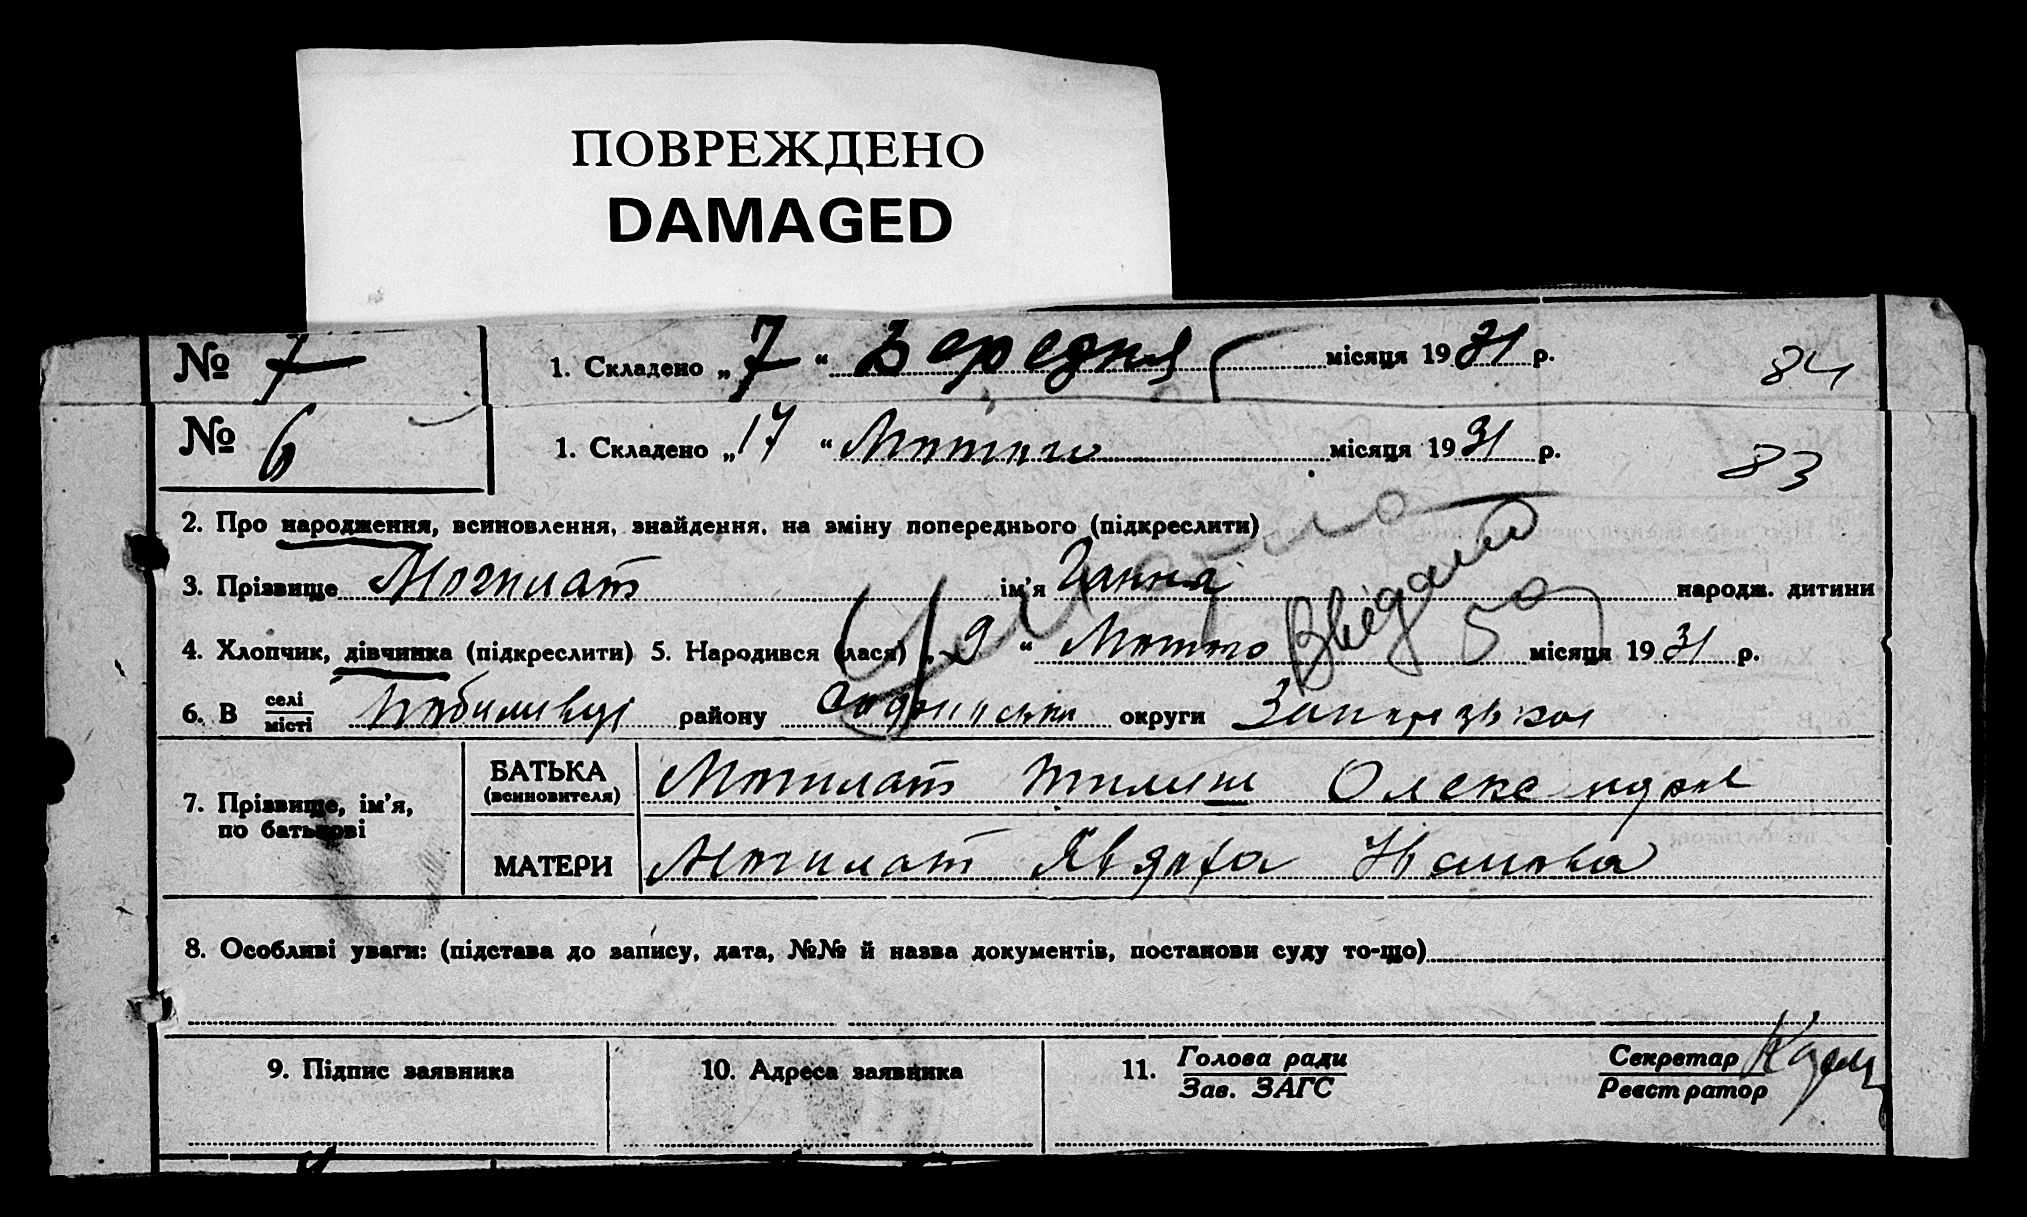 ПОВРЕЖДЕНО
DAMAGED
№ 7 1. Складено „7“ місяця 1931 р. 84
№ 6 1. Складено „17“ Лютого місяця 1931 р. 83
2. Про народження, всиновлення, знайдення, на зміну попереднього (підкреслити)
3. Прізвище Могилат ім'я Ганна народж. дитини
4. Хлопчик, дівчинка (підкреслити) 5. Народився (лася) „9“ Лютого місяця 1931 р.
6. В селі місті району округи
Видано
7. Прізвище, ім'я, по батькові
БАТЬКА (всиновителя) Могилат Олександров
МАТЕРИ Могилат Явдоха
8. Особливі уваги: (підстава до запису, дата, №№ й назва документів, постанови суду то-що)
9. Підпис заявника 10. Адреса заявника 11. Голова ради Секретар
Зав. ЗАГС Реєстратор